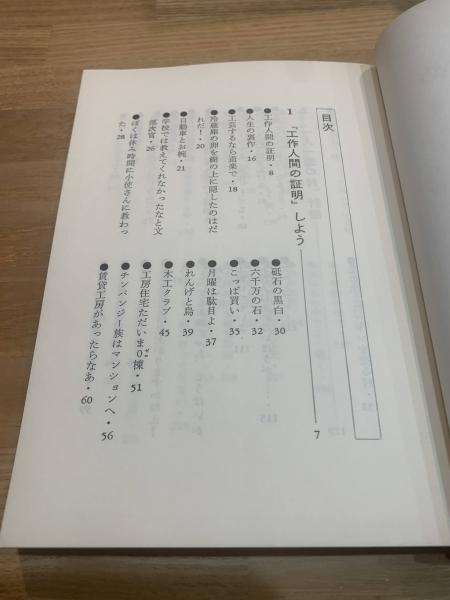 目次
1 『工作人間の証明』しよう 7
●工作人間の証明・8
●人生の裏作・16
●工芸するなら道楽で・18
●冷蔵庫の卵を樹の上に隠したのはだ
れだ!・20
●自動車とお椀・21
●学校では教えてくれなかったなと文
部次官・26
●ぼくは休み時間に小使さんに教わっ
た・28
●砥石の黒白・30
●六千万の石・32
●こっぱ買い・35
●月曜は駄目よ・37
●れんげと鳥・39
●木工クラブ・45
●工房住宅ただいま0棟・51
●チンパンジー族はマンションへ・56
●賃貸工房があったらなあ・60